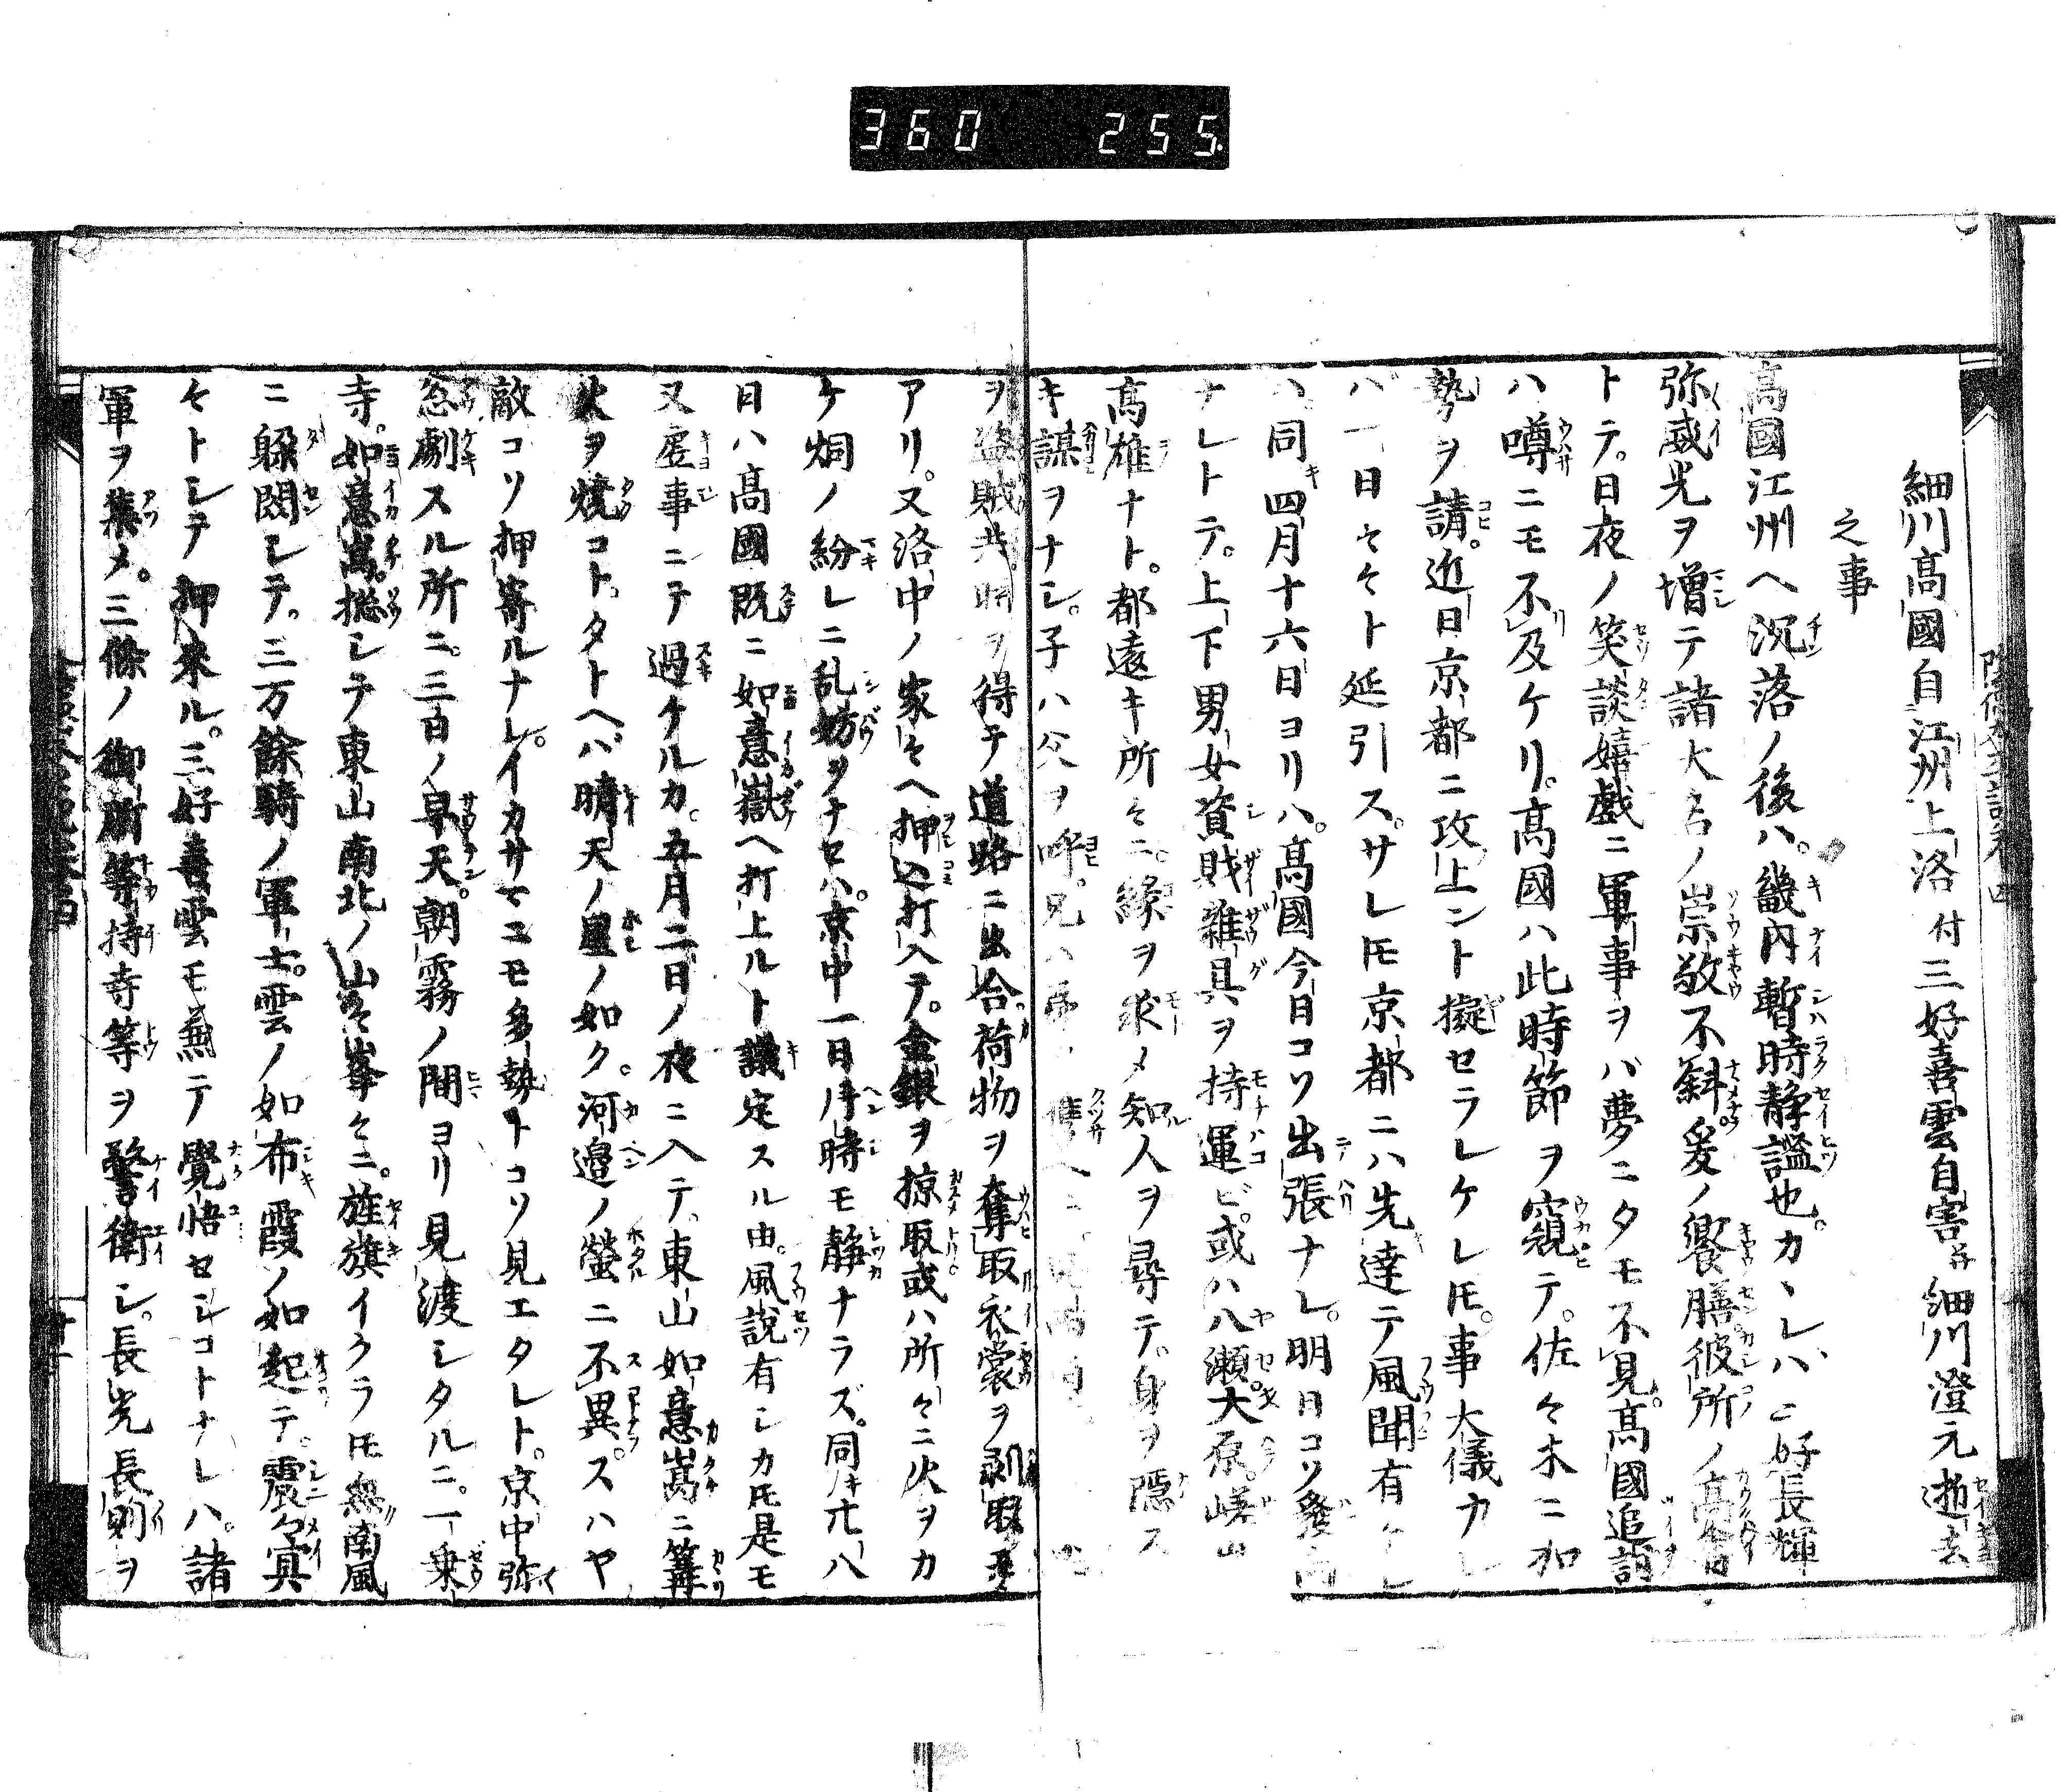 360 255
細川高國自江州上洛付三好喜雲自害并細川澄元逝去
之事
高國江州ヘ沉落ノ後ハ。畿内暫時静謐也。カヽレハ三好長輝
弥威光ヲ増テ諸大名ノ崇敬不斜。爰ノ饗膳彼所ノ高會
トテ。日夜ノ笑談嬉戯ニ軍事ヲバ夢ニタモ不見。高國追討
ハ噂ニモ不及ケリ。高國ハ此時節ヲ窺テ。佐々木ニ加
勢ヲ請。近日京都ニ攻上ント擬セラレケレ𪜈。事大儀カレ
バ一日々々ト延引ス。サレ𪜈京都ニハ先達テ風聞有ケレ
ハ。同四月十六日ヨリハ。高國今日コソ出張ナレ。明日コソ發向
ナレトテ。上下男女資財雜具ヲ持運ビ。或ハ八瀬大原。嵯山
高雄ナト。都遠キ所々ニ。縁ヲ求メ知人ヲ尋テ。身ヲ隱ス
キ謀ヲナシ。子ハ父ヲ呼。兄ハ
ヲ盗賊共時ヲ得テ道路ニ出合荷物ヲ奪取衣裳ヲ剥取
アリ。又洛中ノ家々ヘ押込打入テ。金銀ヲ掠取或ハ所々ニ火ヲカ
ケ烟ノ紛レニ乱妨ヲナセハ。京中一日片時モ静ナラズ。同キ廿八
日ハ高國既ニ如意嶽ヘ打上ルト議定スル由。風説有シカ𪜈是モ
又虚事ニテ過ケルカ。五月二日ノ夜ニ入テ。東山如意嵩ニ篝
火ヲ燒コト。タトヘバ晴天ノ星ノ如ク。河邉ノ螢ニ不異。スハヤ
敵コソ押寄ルナレ。イカサマニモ多勢トコソ見エタレト。京中弥
忩劇スル所ニ。三日ノ早天。朝霧ノ間ヨリ見渡シタルニ。一乗
寺。如意嵩。捴シテ東山南北ノ山々峯々ニ。旌旗イクラ𪜈無南風
ニ躱閃シテ。三万餘騎ノ軍士。雲ノ如布霞ノ如起テ。震々冥
々トシテ押来ル。三好喜雲モ兼テ覺悟セシコトナレハ。諸
軍ヲ集メ。三條ノ御所等持寺等ヲ警衛シ。長光長則ヲ